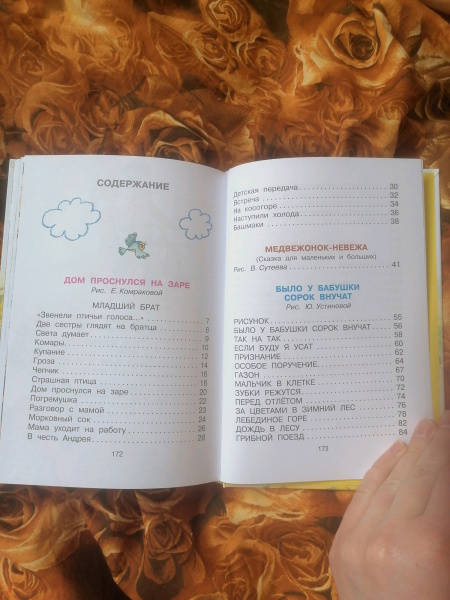 СОДЕРЖАНИЕ
ДОМ ПРОСНУЛСЯ НА ЗАРЕ
Рис. Е. Комраковой
МЛАДШИЙ БРАТ
«Звенели птичьи голоса...» 7
Две сестры глядят на братца 8
Света думает 9
Комары 10
Купание 12
Гроза 14
Чепчик 16
Страшная птица 18
Дом проснулся на заре 20
Погремушка 22
Разговор с мамой 23
Морковный сок 24
Мама уходит на работу 26
В честь Андрея 28
172
Детская передача 30
Встреча 32
На косогоре 34
Наступили холода 36
Башмаки 38
МЕДВЕЖОНОК-НЕВЕЖА
(Сказка для маленьких и больших)
Рис. В. Сутеева 41
БЫЛО У БАБУШКИ
СОРОК ВНУЧАТ
Рис. Ю. Устиновой
РИСУНОК 55
БЫЛО У БАБУШКИ СОРОК ВНУЧАТ 56
ТАК НА ТАК 58
ЕСЛИ БУДУ Я УСАТ 60
ПРИЗНАНИЕ 62
ОСОБОЕ ПОРУЧЕНИЕ 64
ГАЗОН 67
МАЛЬЧИК В КЛЕТКЕ 70
ЗУБКИ РЕЖУТСЯ 72
ПЕРЕД ОТЛЁТОМ 74
ЗА ЦВЕТАМИ В ЗИМНИЙ ЛЕС 76
ЛЕБЕДИНОЕ ГОРЕ 78
ДОЖДЬ В ЛЕСУ 82
ГРИБНОЙ ПОЕЗД 84
173